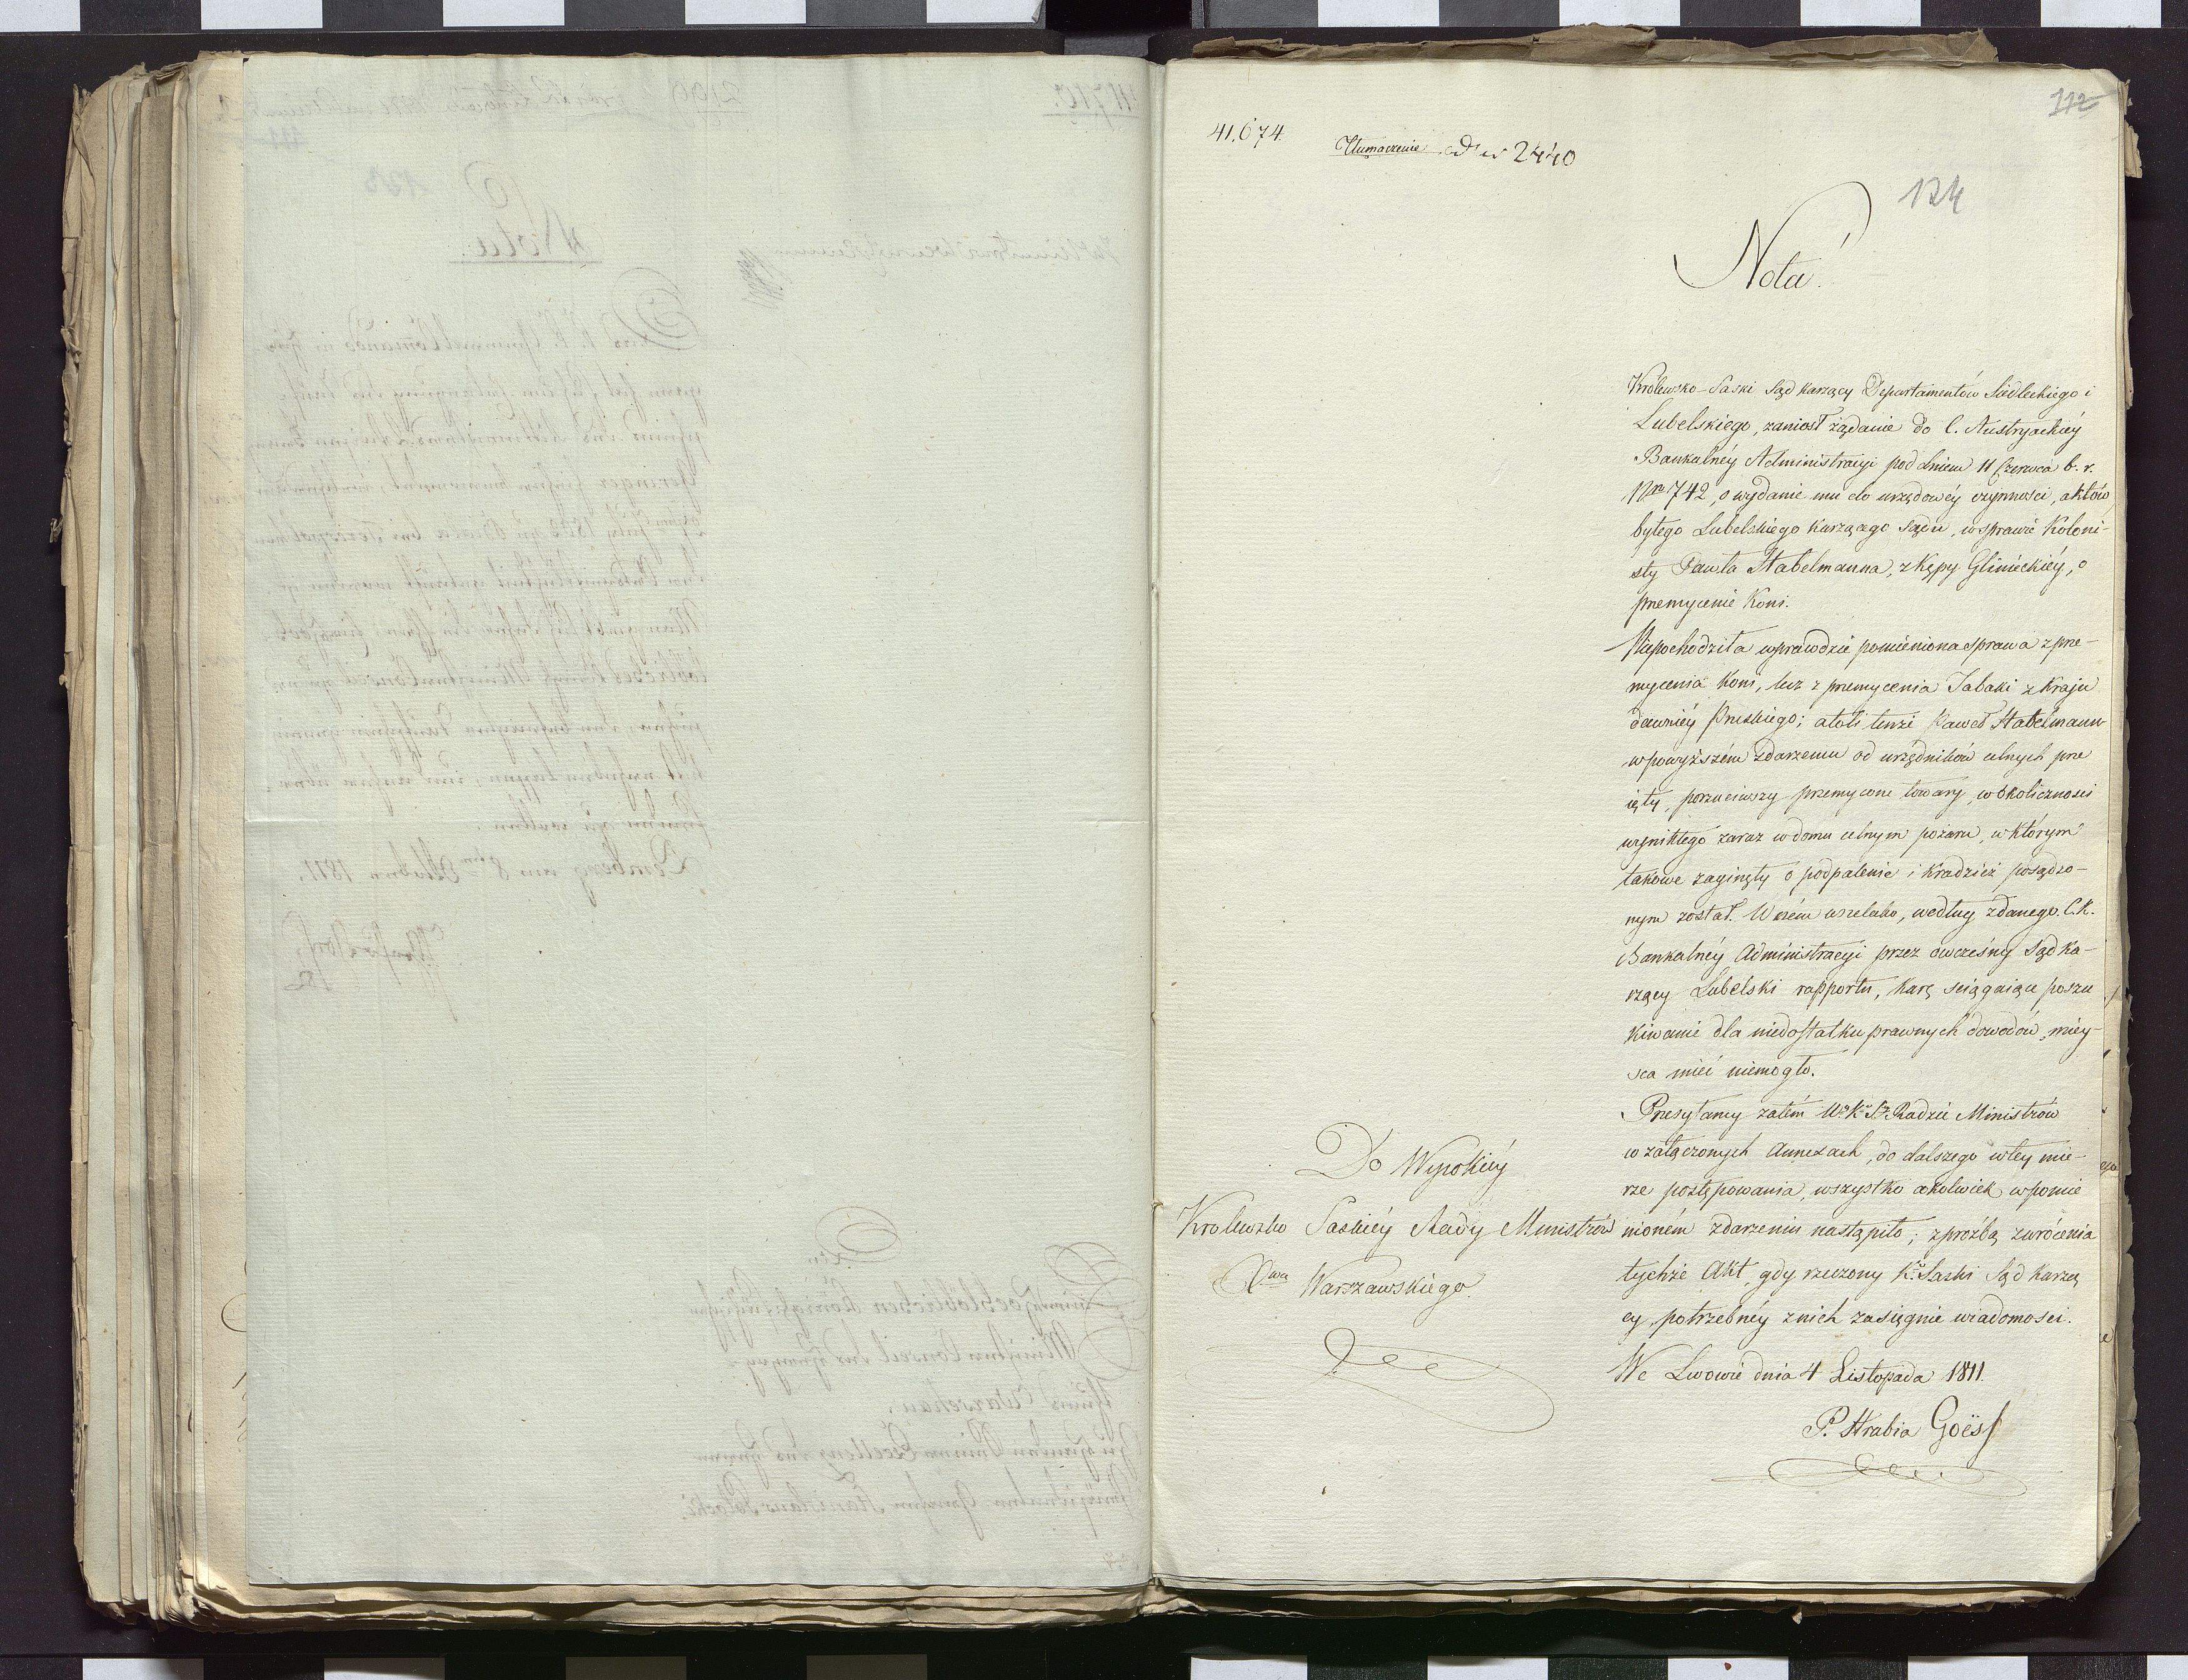 112
41,674
Tłumaczenie ad N 2440
124
Nota.
Królewsko-Saski Sąd karzący Departamentów Siedleckiego i
Lubelskiego, zaniosł żądanie do C. Austryackiéy
Bankalnéy Administracyi pod dniem 11 Czerwca b. r.
Nro 742, o wydanie mu do urzędowéy czynności, aktów
byłego Lubelskiego karzącego Sądu, w sprawie Koloni-
sty Pawła Habelmanna, z Kępy Glinieckiéy, o
przemycenie Koni.
Niepochodziła wprawdzie pomieniona sprawa z prze-
mycenia Koni, lecz z przemycenia Tabaki z Kraju
dawniéy Pruskiego; atoli tenże Paweł Habelmann
w powyższém zdarzeniu od urzędników celnych prze
ięty, porzuciwszy przemycone towary, w okoliczności
wynikłego zaraz w domu celnym pożaru, w którym
takowe zaginęły o podpalenie i kradzież posądzo-
nym został. W czém wszelako, według zdanego C.K.
Bankalnéy Administracyi przez ówczesny Sąd Ka-
rzący Lubelski rapportu, karę ściągaiące poszu
kiwanie dla niedostatku prawnych dowodów, miey-
sca mieć niemogło.
Przesyłamy zatém W. K. S. Radzie Ministrów
w załączonych Annexach, do dalszego w téy mie-
rze postępowania, wszystko cokolwiek w pomie
nioném zdarzeniu nastąpiło; z prożbą zwrócenia
tychże Akt, gdy rzeczony K. Saski Sąd karzą
cy potrzebnéy z nich zasięgnie wiadomości.
We Lwowie dnia 4 Listopada 1811.
P. Hrabia Goëss
Do Wysokiéy
Krolewsko Saskiéy Rady Ministrów
Xwa Warszawskiego